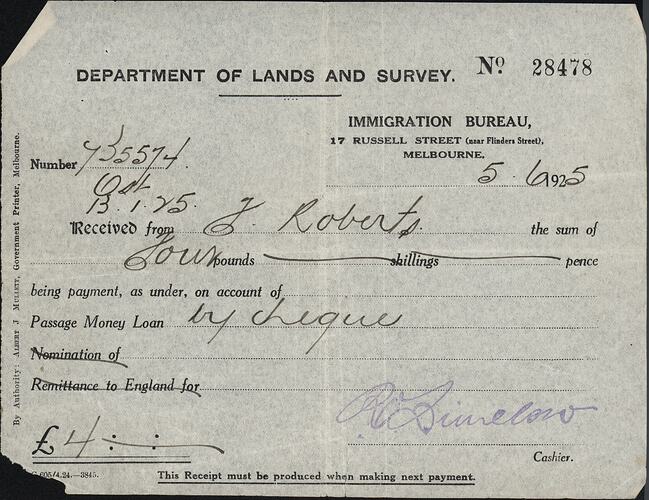 DEPARTMENT OF LANDS AND SURVEY. No 28478
IMMIGRATION BUREAU,
17 RUSSELL STREET (near Flinders Street),
MELBOURNE.
Number 735574
5.6.1925
13.1.25.
Received from J. Roberts. the sum of
Four pounds shillings pence
being payment, as under, on account of
Passage Money Loan by cheque
Nomination of
Remittance to England for
£4 : :
Cashier.
This Receipt must be produced when making next payment.
By Authority: ALBERT J. MULLETT, Government Printer, Melbourne.
605/4.24.—3845.